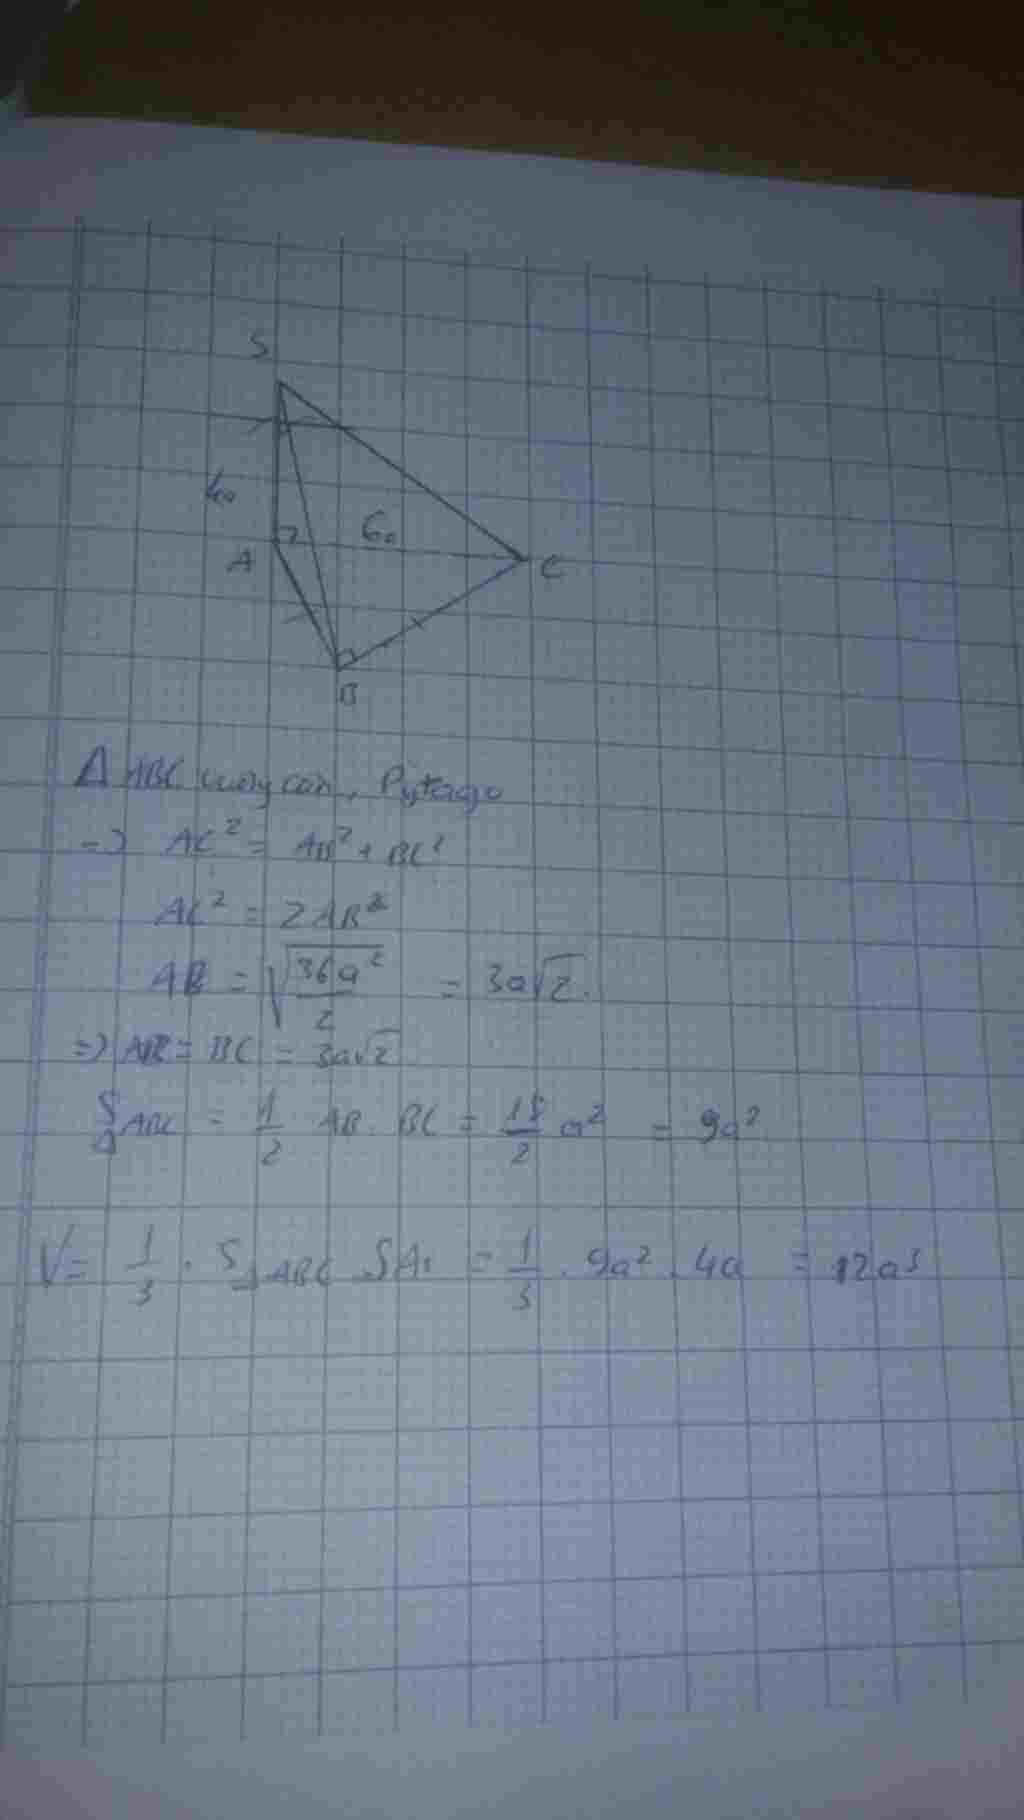 S
4a
6a
A
C
B
Δ ABC vuông cân, Pytago
=> AC² = AB² + BC²
AC² = 2AB²
AB = √(36a²/2) = 3a√2.
=> AB = BC = 3a√2
S ΔABC = 1/2 AB. BC = 18/2 a² = 9a²
V = 1/3 . S ΔABC . SA = 1/3 . 9a² . 4a = 12a³